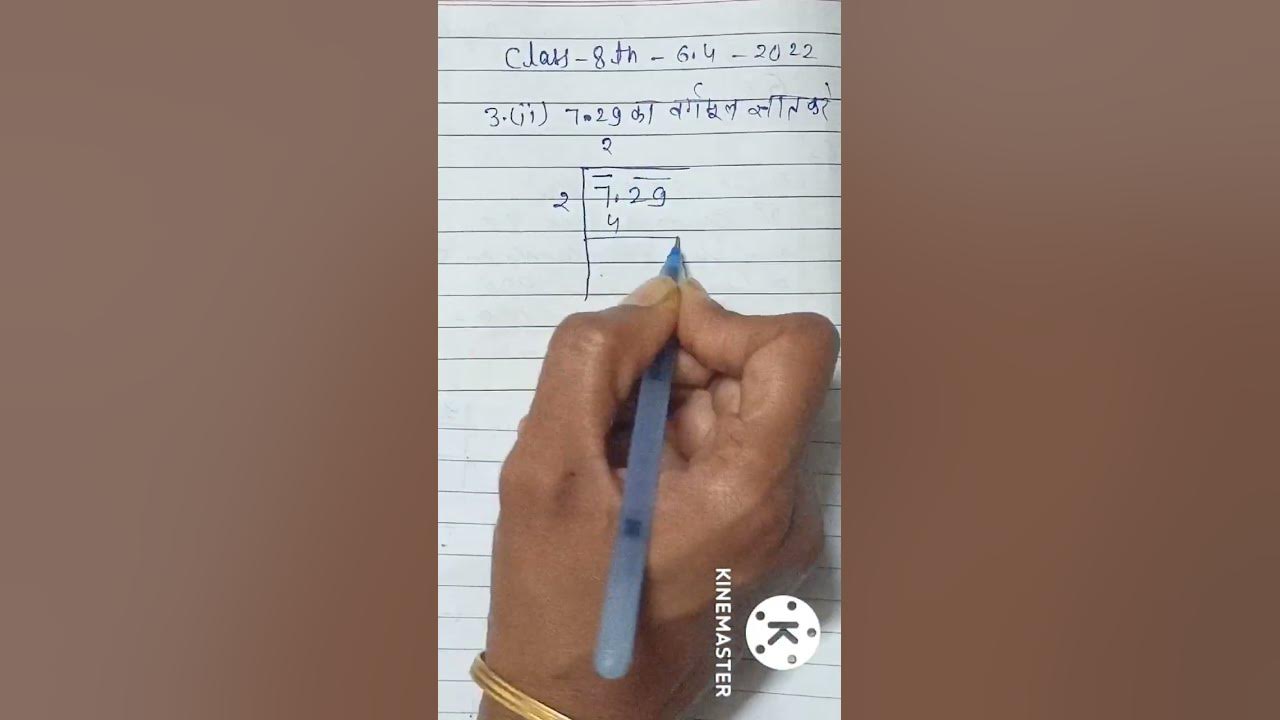 Class-8th - 6.4 - 2022
3.(ii) 7.29 का वर्गमूल ज्ञात करे
2
2 7.29
4
KINEMASTER